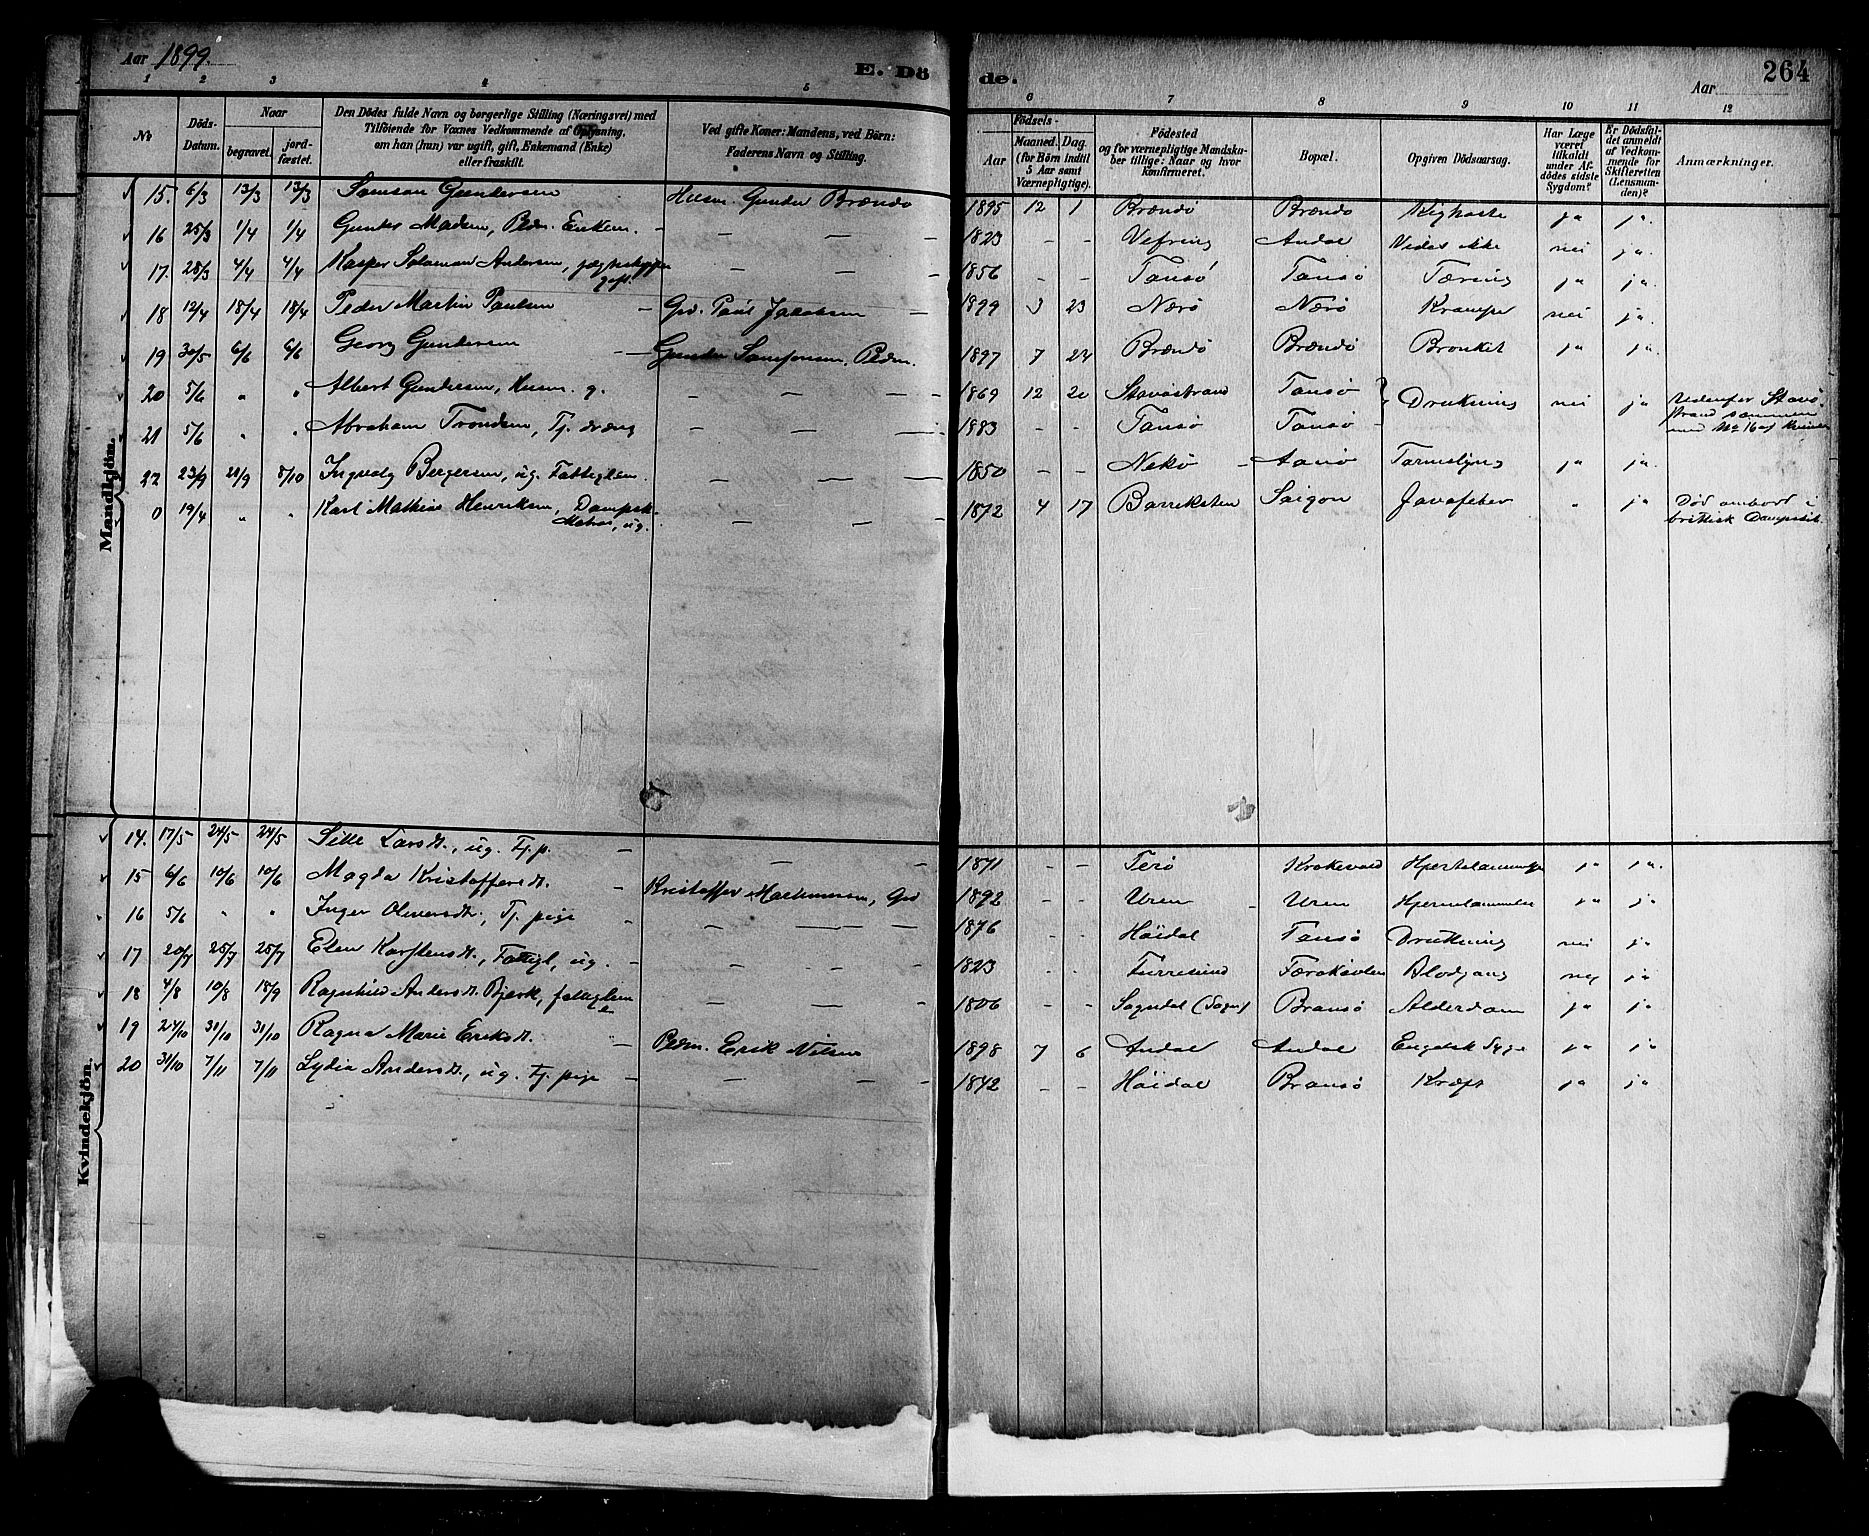 Aar 1899.
E. Dö
de.
Aar
264
1 2 3 4 5
6 7 8 9 10 11 12
No
Döds-Datum.
Naar
begravet.
jordfæstet.
Den Dödes fulde Navn og borgerlige Stilling (Næringsvei) med
Tilföiende for Voxnes Vedkommende af Oplysning,
om han (hun) var ugift, gift, Enkemand (Enke)
eller fraskilt.
Ved gifte Koner: Mandens, ved Börn:
Faderens Navn og Stilling.
Födsels-
Aar
Maaned. Dag.
(for Börn indtil
5 Aar samt
Værnepligtige).
Födested
og for værnepligtige Mandskaber tillige: Naar og hvor
konfirmeret.
Bopæl.
Opgiven Dödsaarsag.
Har Læge
været
tilkaldt
under Afdödes sidste
Sygdom?
Er Dödsfaldet anmeldt
af Vedkommende for
Skifteretten
(Lensmanden)?
Anmærkninger.
Mandkjön.
15. 6/3 13/3 13/3 Samson Gundersen Husm. Gunder Brændö 1895 12 1 Brændö Brændö Kighoste ja ja.
16 25/3 1/4 1/4 Madsen, Pldm. Enkem. - - - - 1823 - - Vefring Andal Vides ikke nei ja.
17. 28/3 4/4 4/4 Kasper Salamon Andersen, gift. - - - 1856 - - Tansö Tansö Tæring ja ja.
18 12/4 18/4 18/4 Peder Martin Paulsen - Grd. Paul Jacobsen - 1899 3 23 Nærö Nærö Krampe nei ja.
19 30/5 6/6 6/6 Georg Gundersen - Gunder Samsonsen, Pldm. 1897 7 24 Brændö Brændö Bronkit ja ja.
20 5/6 " " Albert Gundersen, Husm. g. - - - - 1869 12 20 Stavöstrand Tansö } Drukning nei ja Udenfor Stavöstrand sammen
med No 16 af Kvinder
21 5/6 " " Abraham Trondsen, Tj. dreng - - - 1883 - - Tansö Tansö -
22 23/9 28/9 8/10 Ingvald Bergersen, ug. Fattiglem. - - - 1850 - - - Tarmslyng ja ja.
0 19/4 " " Karl Mathias Henriksen, Dampsk. Matros, ug. - - - 1872 4 17 Barreksten Saigon Javafeber " ja Död ombord i
brittisk Dampskib.
Kvindekjön.
14. 17/5 24/5 24/5 Larsdt., ug. Tj. p. - - - 1871 - - Terö Krokevaid ja ja.
15 6/6 10/6 10/6 Magda Kristoffersdt. - Kristoffer Grd 1892 - - Uren - Uren ja ja
16 5/6 " " Inger Oliversdt., Tj. pige - - - 1876 - - Höidal Tansö Drukning nei ja
17 20/7 25/7 25/7 Elen Karstensdt., Fattigl, ug. - - - - 1823 - - Furresund Blodgang nei ja
18 4/8 10/8 18/9 Ragnhild Andersdt. Bjerk, fattiglem - - - 1806 - - Sogndal (Sogn) Bransö Alderdom ja ja
19 24/10 31/10 31/10 Ragna Marie Eriksdt. - Pldm. Erik Nilsen 1898 7 6 Andal Andal Engelsk Syge ja ja
20 31/10 7/11 7/11 Lydia Andersdt., ug. Tj. pige - - - - 1842 - - Höidal Bransö Kræft ja ja